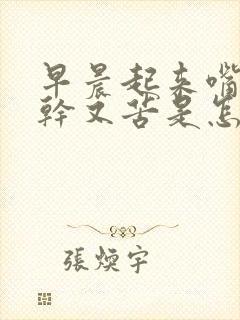 早晨起来嘴
幹又苦是怎
張煥宇